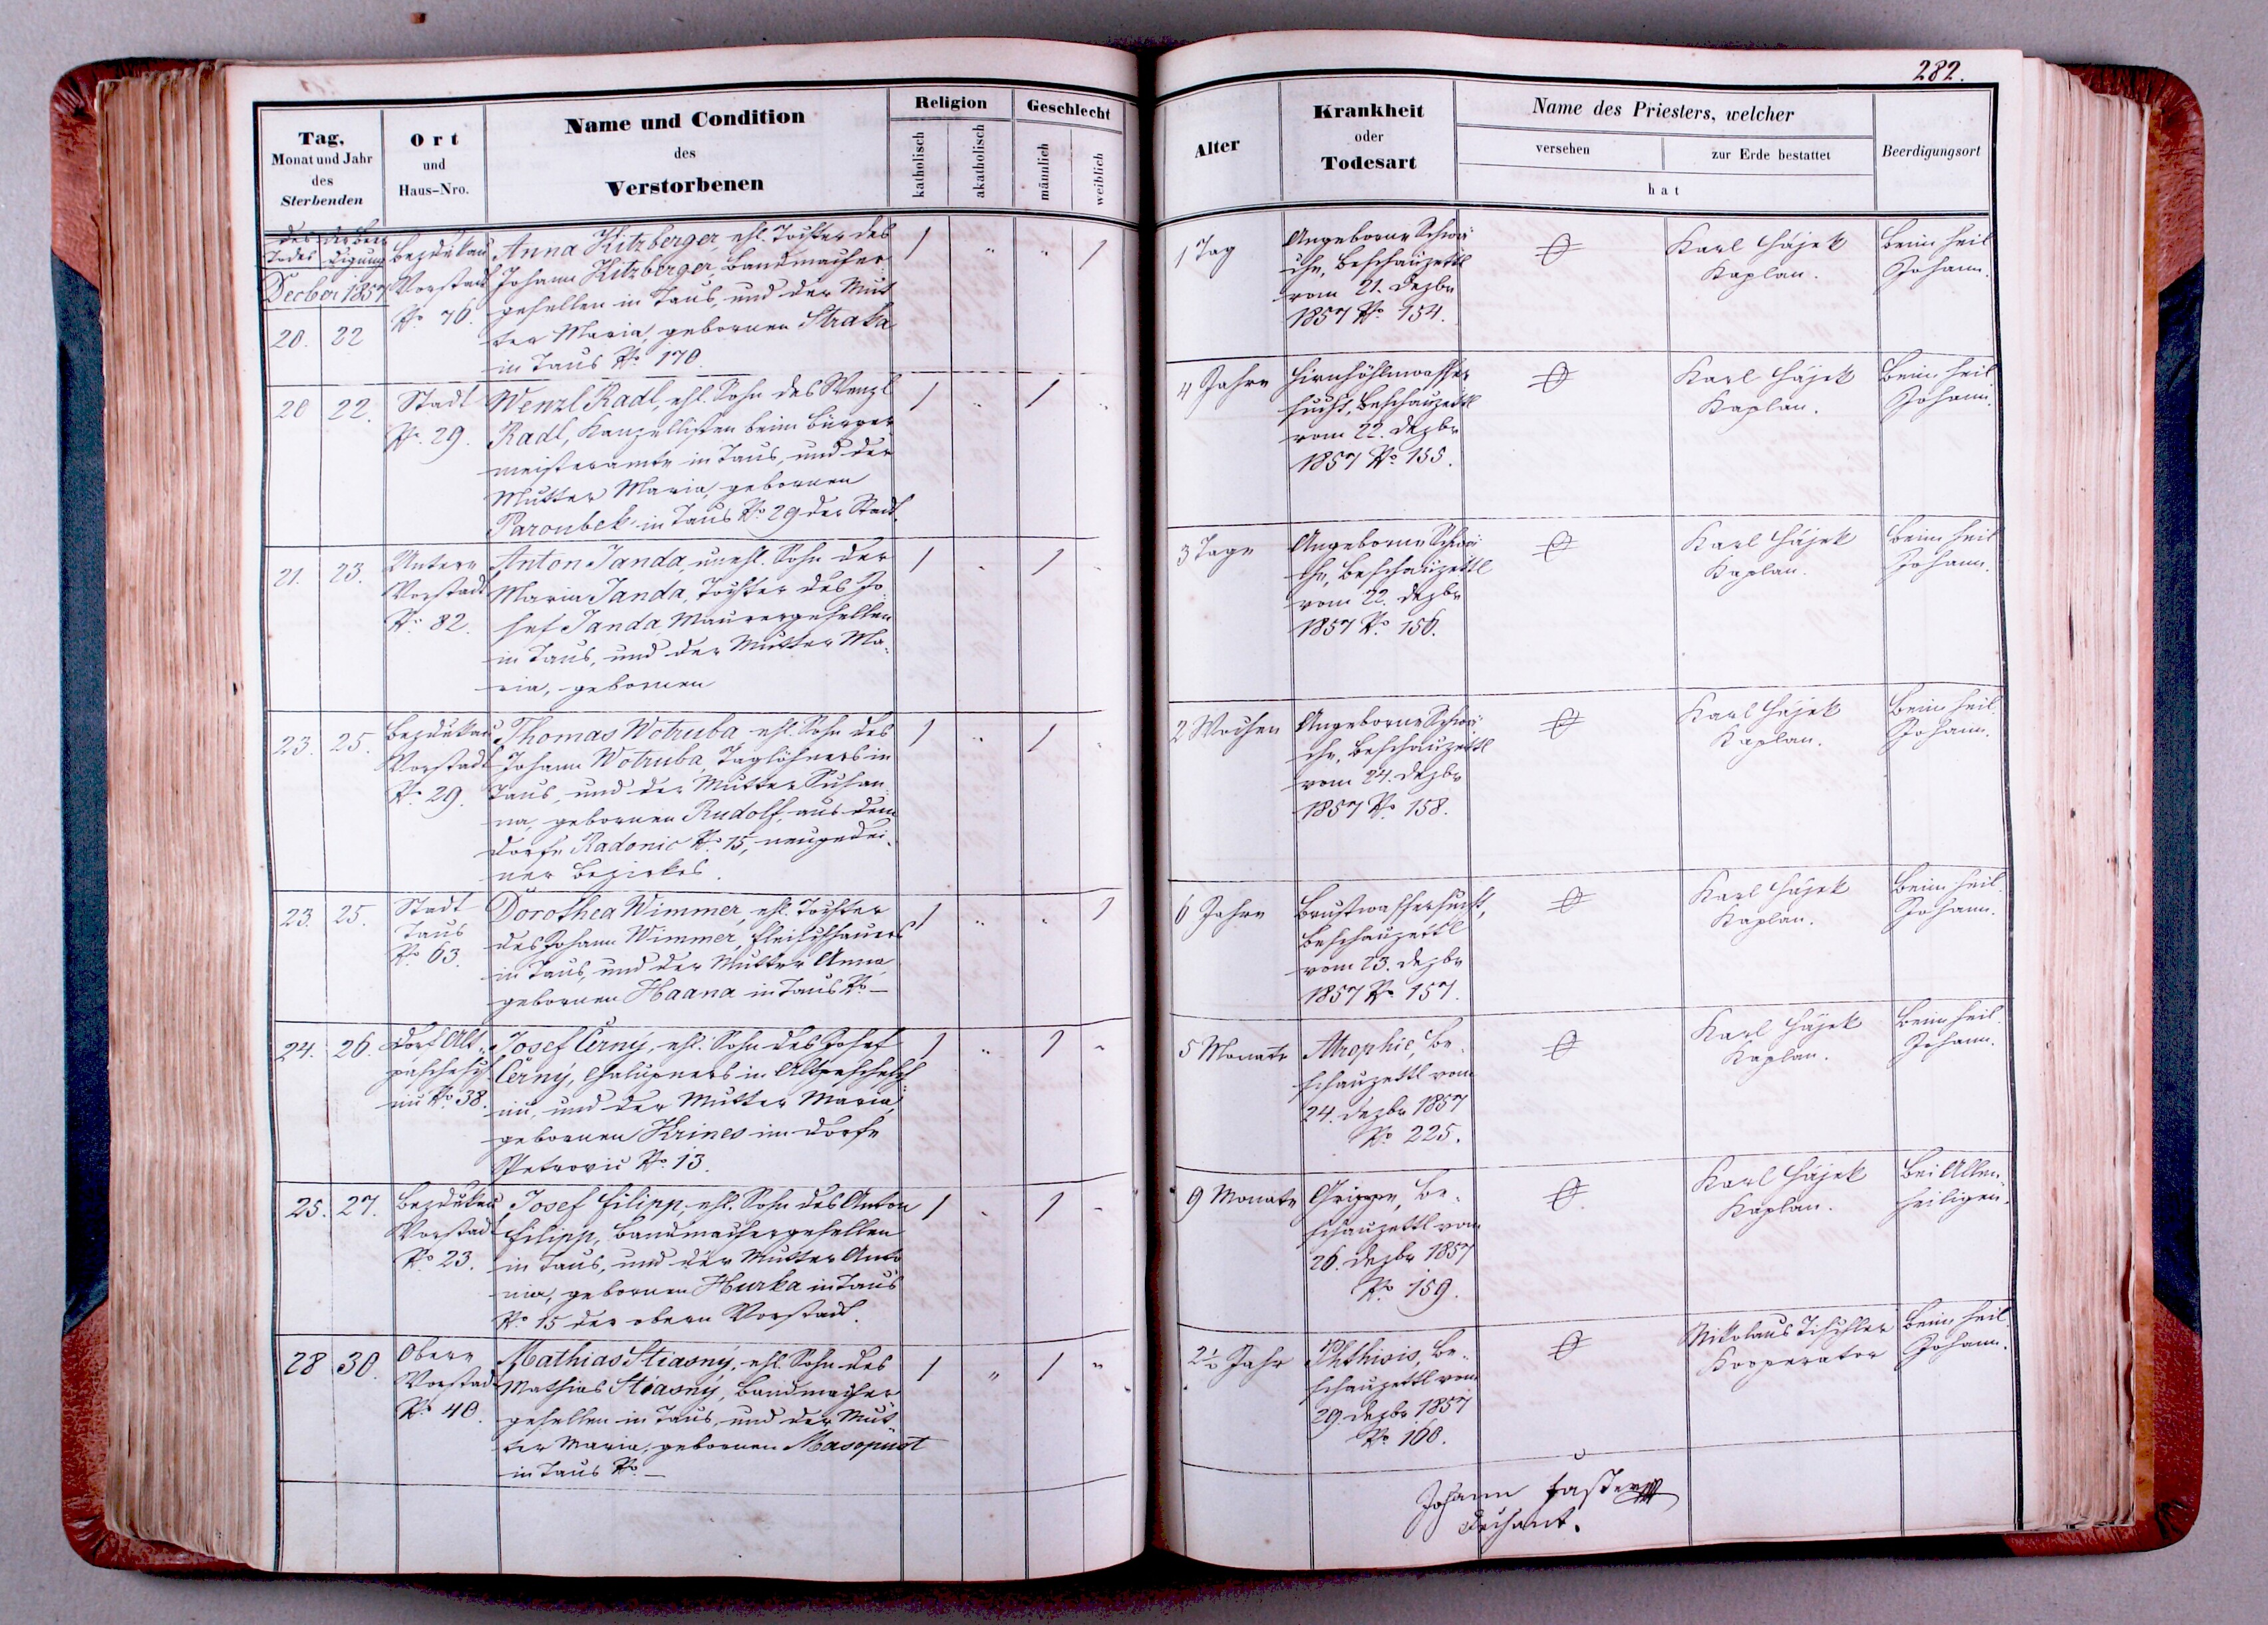 282.
Tag,
Monat und Jahr
des
Sterbenden
Ort
und
Haus-Nro.
Name und Condition
des
Verstorbenen
Religion
katholisch
akatholisch
Geschlecht
männlich
weiblich
Alter
Krankheit
oder
Todesart
Name des Priesters, welcher
versehen
zur Erde bestattet
hat
Beerdigungsort
des Todes
der Beer
digung
Decber 1857
20. 22
Bezdiekau
Vorstadt
No 76.
Anna Kitzberger, ehl. Tochter des
Johann Kitzberger, Bandmacher
gesellen in Taus, und der Mut
ter Maria, gebornen Straka
in Taus No 170.
1 " " 1
1 Tag
Angeborne Schwä
che, Beschauzettl
vom 21. Dezbr
1857 No 154.
Karl Hájek
Kaplan.
Beim heil
Johann.
20 22.
Stadt
No 29.
Wenzl Radl, ehl. Sohn des Wenzl
Radl, Kanzellisten beim Bürger
meisteramte in Taus, und der
Mutter Maria, gebornen
Paroubek in Taus No 29 der Stadt.
1 " 1 "
4 Jahre
Hirnhöhlenwasser
sucht, Beschauzettl
vom 22. Dezbr
1857 No 155.
Karl Hájek
Kaplan.
Beim heil
Johann.
21. 23.
Untere
Vorstadt
No 82.
Anton Janda, unehl. Sohn der
Maria Janda, Tochter des Jo
sef Janda Maurergesellen
in Taus, und der Mutter Ma
ria, gebornen
1 " 1 "
3 Tage
Angeborne Schwä
che, Beschauzettl
vom 22. Dezbr
1857 No 156.
Karl Hájek
Kaplan.
Beim heil
Johann.
23. 25.
Bezdiekau
Vorstadt
No 29.
Thomas Wotruba ehl. Sohn des
Johann Wotruba, Taglöhners in
Taus, und der Mutter Susan
na, gebornen Rudolf, aus dem
Dorfe Radonic No 15, neugedei
ner Bezirkes.
1 " 1 "
2 Wochen
Angeborne Schwä
che, Beschauzettl
vom 24. Dezbr
1857 No 158.
Karl Hájek
Kaplan.
Beim heil.
Johann.
23. 25.
Stadt
Taus
No 63.
Dorothea Wimmer, ehl. Tochter
des Johann Wimmer, Fleischhauers
in Taus, und der Mutter Anna,
gebornen Haana in Taus No —
1 " " 1
6 Jahre
Brustwassersucht,
Beschauzettl
vom 23. Dezbr
1857 No 157.
Karl Hájek
Kaplan.
Beim heil.
Johann.
24. 26.
Dorf Alt
No 38.
Josef Černý, ehl. Sohn des Josef
Černý, Chalupners in
und der Mutter Maria,
gebornen Krines im Dorfe
Petrovic No 13.
1 " 1 "
5 Monate
Atrophie, Be
schauzettl vom
24. Dezbr 1857
No 225.
Karl Hájek
Kaplan.
Beim heil.
Johann.
25. 27.
Bezdiekau
Vorstadt
No 23.
Josef Filipp, ehl. Sohn des Anton
Filipp, Bandmachergesellen
in Taus, und der Mutter Anto
nia, gebornen Hurka in Taus
No 15 der obern Vorstadt.
1 " 1 "
9 Monate
Grippe, Be
schauzettl vom
26. Dezbr 1857
No 159.
Karl Hájek
Kaplan.
Bei Allen
heiligen.
28 30.
Obere
Vorstadt
No 40.
Mathias Stiasný, ehl. Sohn des
Mathias Stiasný, Bandmacher
gesellen in Taus, und der Mut
ter Maria, gebornen Masopust
in Taus No —
1 " 1 "
2½ Jahr
Phthisis, Be
schauzettl vom
29. Dezbr 1857
No 160.
Nikolaus Tischler
Kooperator
Beim heil.
Johann.
Johann Faster
Dechant.